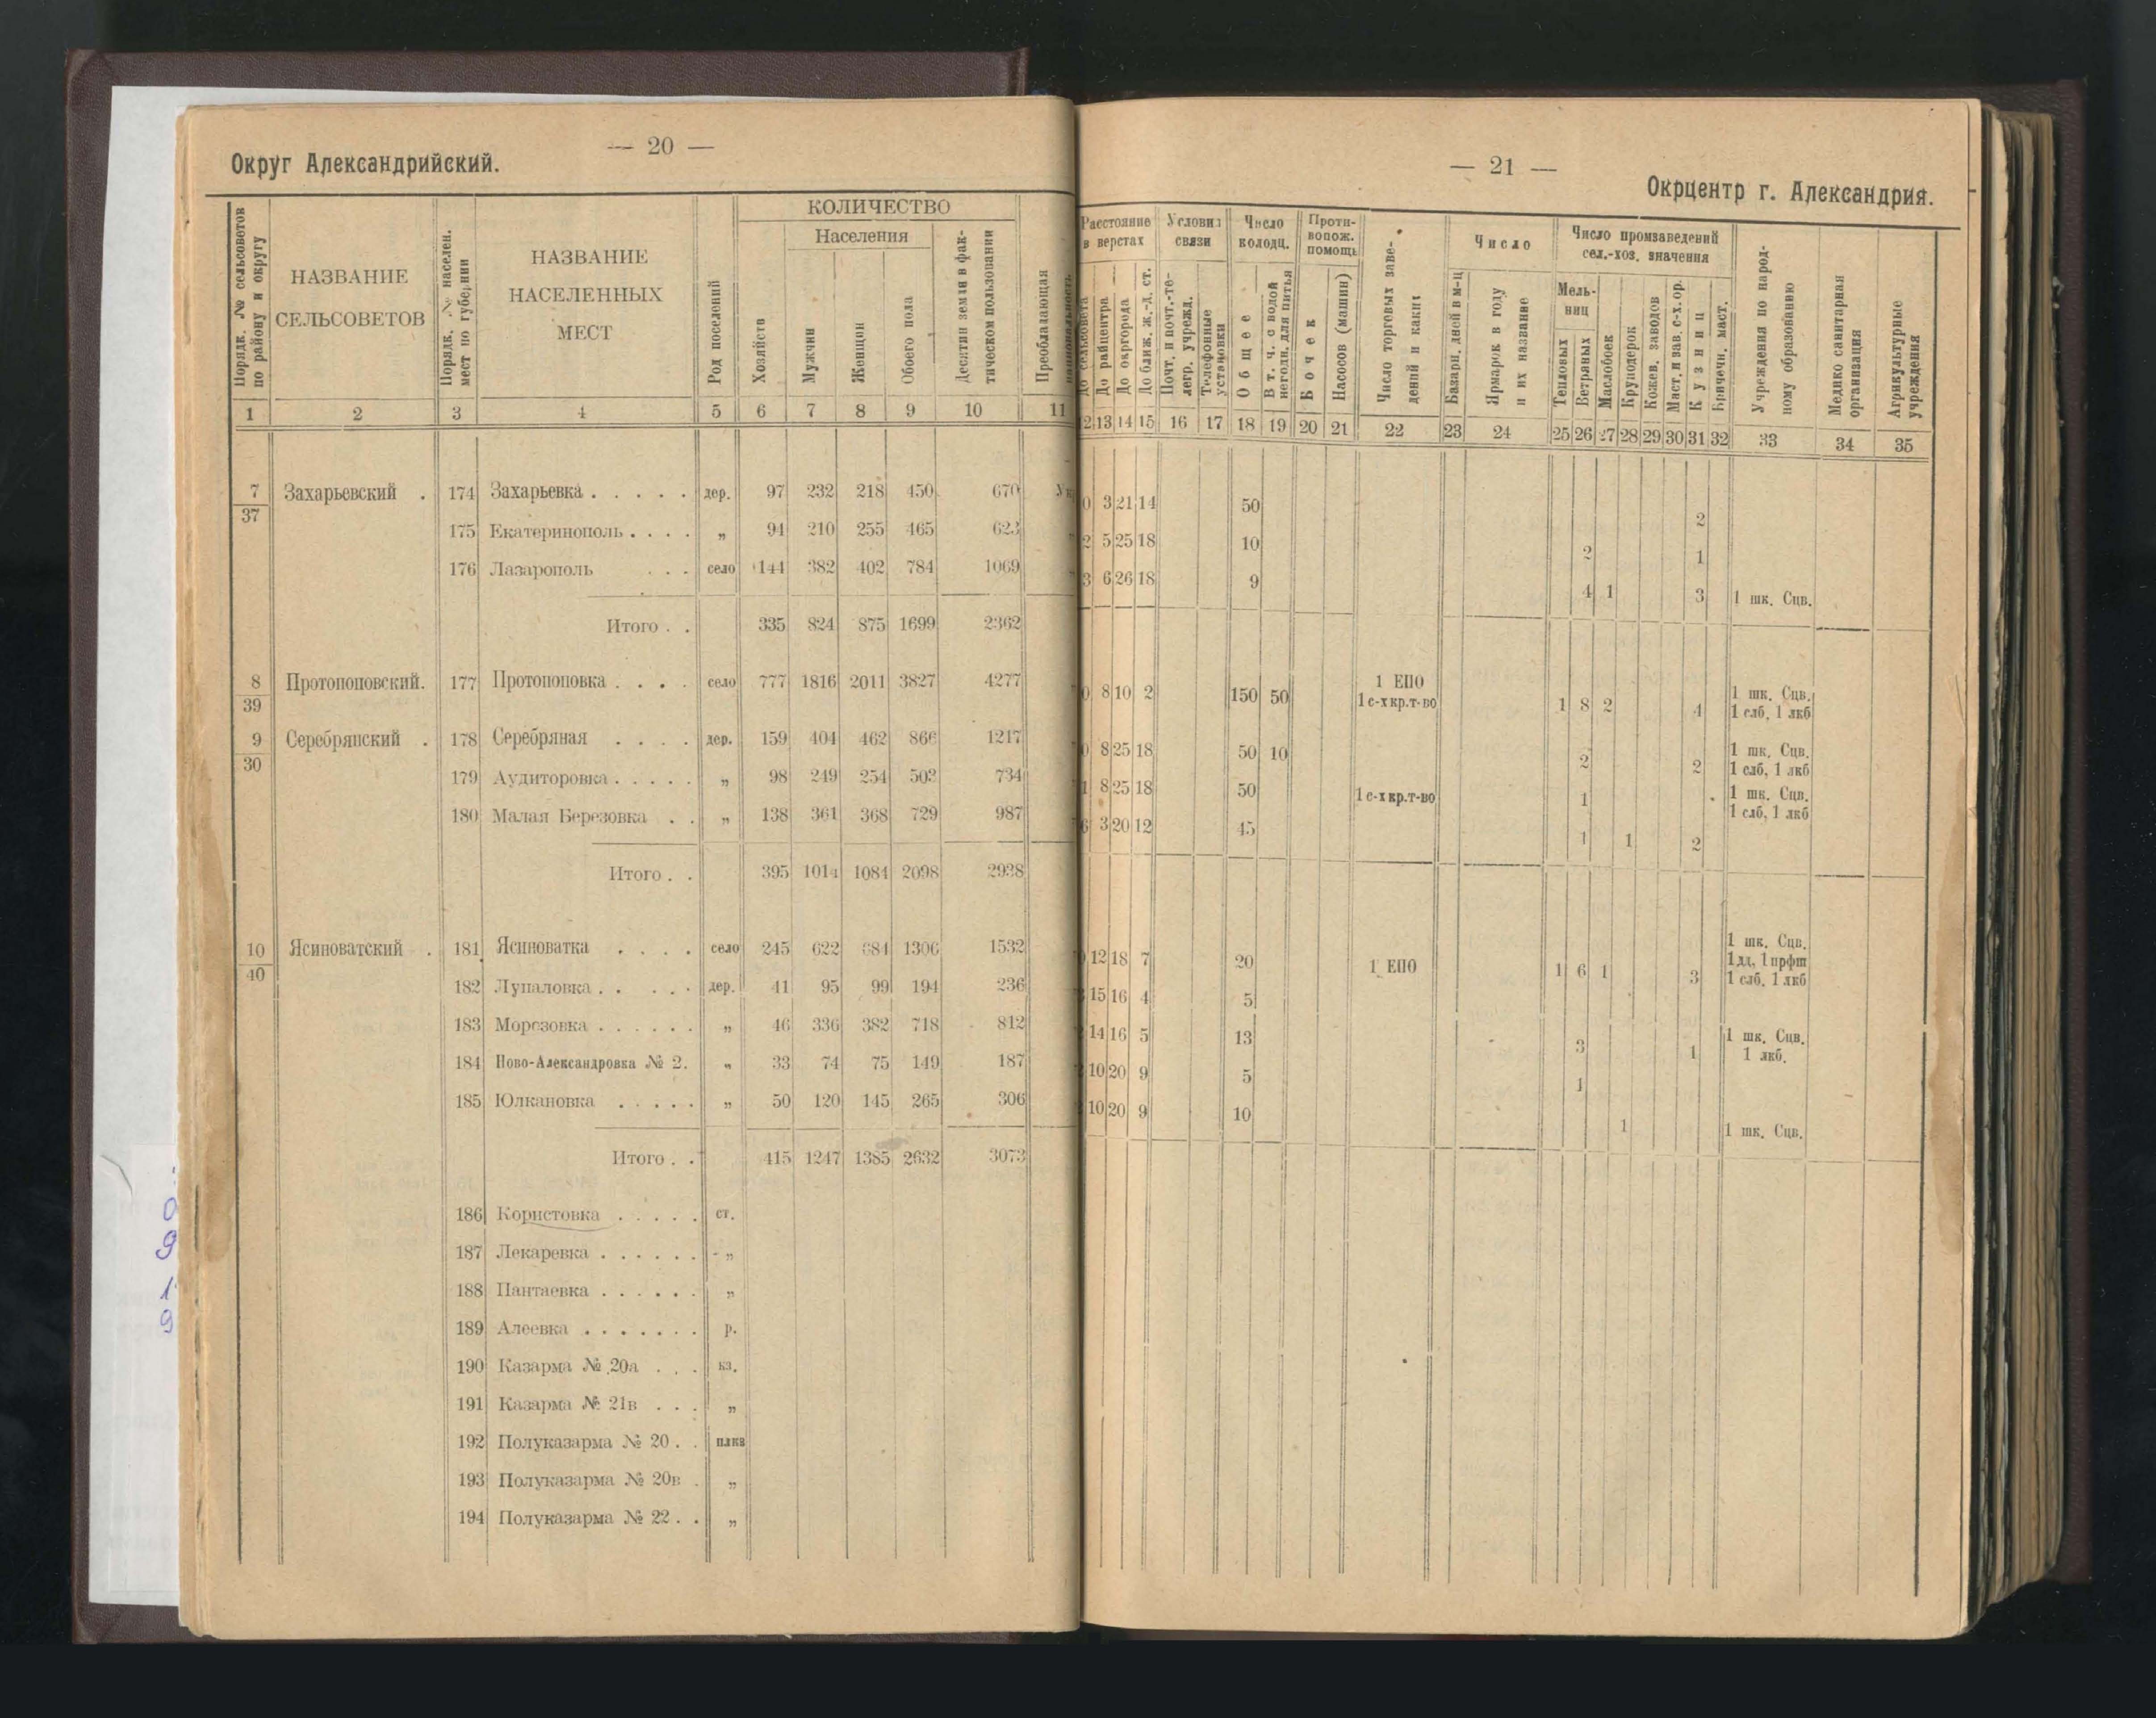 — 20 —
Округ Александрийский.
Порядк. № сельсоветов по району и округу
НАЗВАНИЕ СЕЛЬСОВЕТОВ
Порядк. № населен. мест по губернии
НАЗВАНИЕ НАСЕЛЕННЫХ МЕСТ
Род поселений
КОЛИЧЕСТВО
Хозяйств
Населения
Мужчин
Женщин
Обоего пола
Десятин земли в фактическом пользовании
Преобладающая
1 2 3 4 5 6 7 8 9 10 11
7/37 Захарьевский . 174 Захарьевка . . . . . дер. 97 232 218 450 670
175 Екатеринополь . . . . „ 94 210 255 465 623
176 Лазарополь . . . село 144 382 402 784 1069
Итого . . 335 824 875 1699 2362
8/39 Протопоповский. 177 Протопоповка . . . . село 777 1816 2011 3827 4277
9/30 Серебрянский . 178 Серебряная . . . . дер. 159 404 462 866 1217
179 Аудиторовка . . . . . „ 98 249 254 503 734
180 Малая Березовка . . „ 138 361 368 729 987
Итого . . 395 1014 1084 2098 2938
10/40 Ясиноватский . 181 Ясиноватка . . . . село 245 622 684 1306 1532
182 Лупаловка . . . . . дер. 41 95 99 194 236
183 Морозовка . . . . . . „ 46 336 382 718 812
184 Ново-Александровка № 2. „ 33 74 75 149 187
185 Юлкановка . . . . . „ 50 120 145 265 306
Итого . . 415 1247 1385 2632 3073
186 Користовка . . . . . ст.
187 Лекаревка . . . . . . „
188 Пантаевка . . . . . . „
189 Алеевка . . . . . . . р.
190 Казарма № 20а . . . кз.
191 Казарма № 21в . . . „
192 Полуказарма № 20 . . плкз
193 Полуказарма № 20в . „
194 Полуказарма № 22 . . „
— 21 —
Окрцентр г. Александрия.
Расстояние в верстах
До сельсовета
До райцентра
До окргорода
До ближ. ж.-д. ст.
Условия связи
Почт. и почт.-телегр. учрежд.
Телефонные установки
Число колодц.
Общее
В т. ч. с водой негодн. для питья
Противопож. помощь
Бочек
Насосов (машин)
Число торговых заведений и каких
Число
Базарн. дней в м-ц
Ярмарок в году и их название
Число промзаведений сел.-хоз. значения
Мельниц
Тепловых
Ветряных
Маслобоек
Круподерок
Кожев. заводов
Маст. и зав. с-х. ор.
Кузниц
Кирпичн. маст.
Учреждения по народному образованию
Медико санитарная организация
Агрикультурные учреждения
13 14 15 16 17 18 19 20 21 22 23 24 25 26 27 28 29 30 31 32 33 34 35
0 3 21 14 50 2
2 5 25 18 10 2 1
3 6 26 18 9 4 1 3 1 шк. Сцв.
0 8 10 2 150 50 1 ЕПО 1 с-х кр. т-во 1 8 2 4 1 шк. Сцв. 1 слб, 1 лкб
0 8 25 18 50 10 2 2 1 шк. Сцв. 1 слб, 1 лкб
1 8 25 18 50 1 с-х кр. т-во 1 1 шк. Сцв. 1 слб, 1 лкб
6 3 20 12 45 1 1 2
12 18 7 20 1 ЕПО 1 6 1 3 1 шк. Сцв. 1 дд, 1 прфш 1 слб, 1 лкб
15 16 4 5
14 16 5 13 3 1 1 шк. Сцв. 1 лкб.
10 20 9 5 1
10 20 9 10 1 1 шк. Сцв.